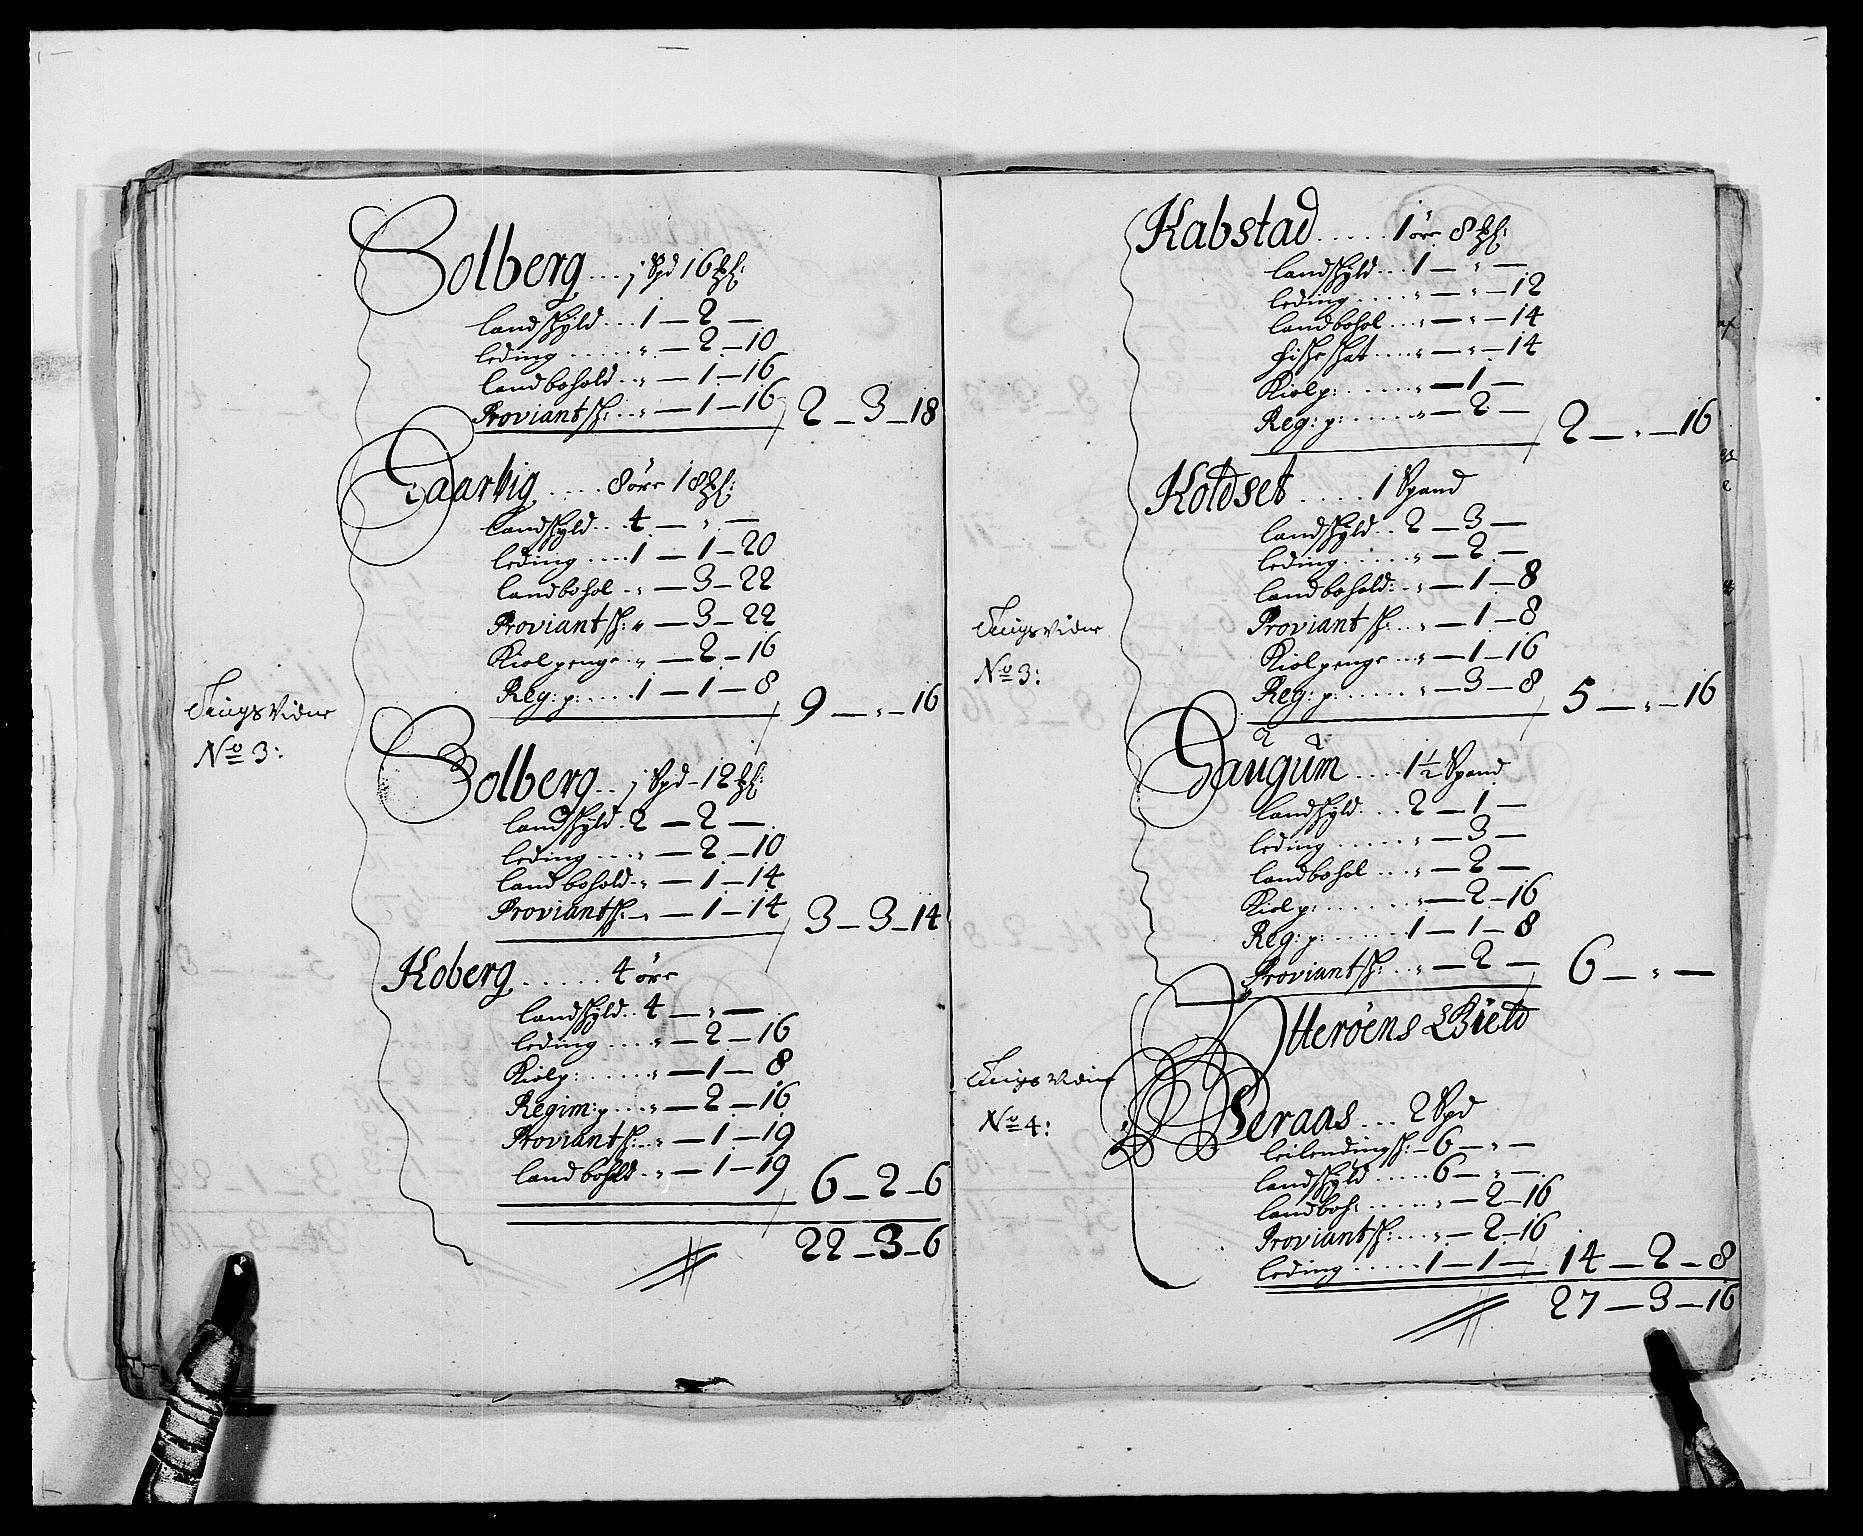 Solberg .... j Spd 16 ℔:
landskyld ... 1 — 2 —
leding ..... " — 2 — 10
landbohold .. " — 1 — 16
Proviantsk: ... " — 1 — 16 / 2 — 3 — 18
Haarbig .... 8 öre 18 ℔:
landskyld ... 4 — " —
leding ..... 1 — 1 — 20
landbohol .. " — 3 — 22
Proviantsk: " — 3 — 22
Kiolpenge .. " — 2 — 16
Reg: p: .... 1 — 1 — 8 / 9 — " — 16
Tingsvidne
No 3:
Solberg .. j Spd — 12 ℔:
landskyld . 2 — 2 —
leding .... " — 2 — 10
landbohold .. " — 1 — 14
Proviantsk: .. " — 1 — 14 / 3 — 3 — 14
Koberg ..... 4 öre
landskyld .. 4 — " —
leding .... " — 2 — 16
Kiolp: ...... " — 1 — 8
Regim: p ... " — 2 — 16
Proviantsk: .. " — 1 — 19
landbohold .. " — 1 — 19 / 6 — 2 — 6
22 — 3 — 6
Kabstad ..... 1 öre 8 ℔:
landskyld ... 1 — " —
leding ..... " — " — 12
landbohol .. " — " — 14
fiskeskat .... " — " — 14
Kiolp: ...... " — 1 —
Reg: p: ...... " — 2 — / 2 — " — 16
Koldset ..... 1 Spand
landskyld .. 2 — 3 —
leding ...... " — 2 —
landbohold: .. " — 1 — 8
Proviantsk: .. " — 1 — 8
Kiolpenge ... " — 1 — 16
Reg: p: ...... " — 3 — 8 / 5 — " — 16
Tingsvidne
No 3:
Haugum .... 1½ Spand
landskyld ... 2 — 1 —
leding ...... " — 3 —
landbohol ... " — 2 —
Kiolp: ....... " — 2 — 16
Reg: p: ...... 1 — 1 — 8
Proviantsk: .. " — 2 — / 6 — " —
Ytterøens Gield
Tingsvidne
No 4:
Beraas ... 2 Spd
leilendingsk: — 6 — " —
landskyld ..... 6 — " —
landboh: ..... " — 2 — 16
Proviantsk: .... " — 2 — 16
leding ..... 1 — 1 — / 14 — 2 — 8
27 — 3 — 16